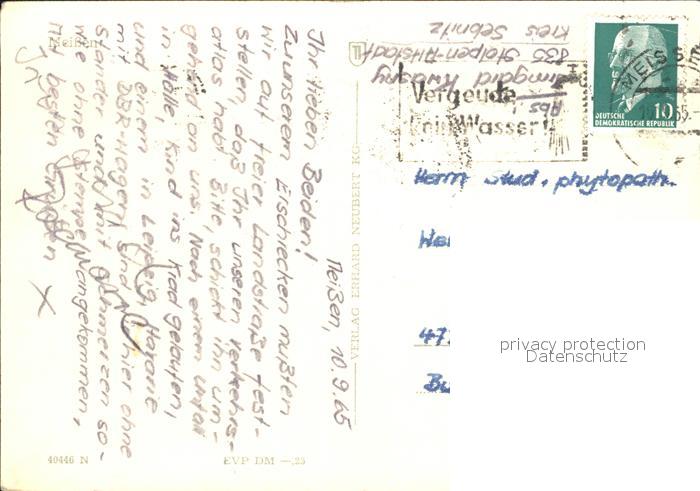 Meißen
Meißen, 10.9.65
Ihr lieben Beiden!
Zu unserem Erschrecken mußten
wir auf freier Landstraße fest-
stellen, daß Ihr unseren Verkehrs-
atlas habt. Bitte, schickt ihn um-
gehend an uns. Nach einem Unfall
in Halle, Kind ins Rad gelaufen,
und einem in Leipzig, Havarie
mit sind hier ohne
Ständer und mit Schmerzen so-
wie ohne angekommen.
Mit besten Grüßen
VERLAG ERHARD NEUBERT KG
40446 N
EVP DM —,25
Abs.
Irmgard
835 Stolpen-Altstadt
Kreis Sebnitz
Vergeude
kein Wasser!
MEISSEN
10
DEUTSCHE
DEMOKRATISCHE REPUBLIK
Herrn stud. phytopath.
47
privacy protection
Datenschutz